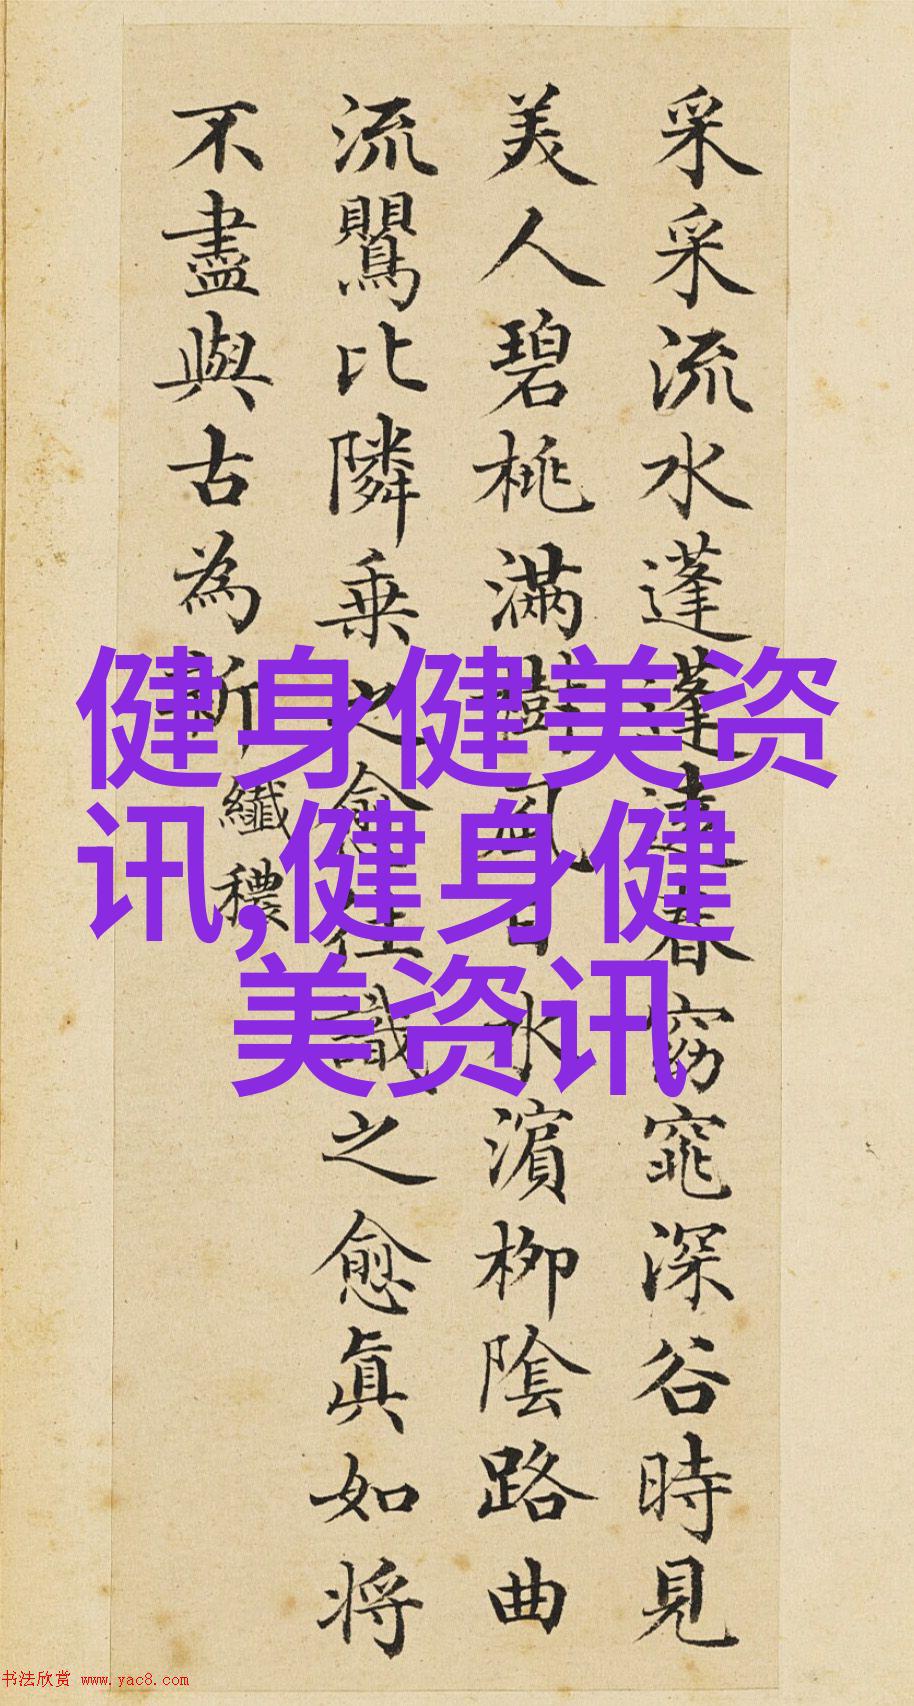 采采流水蓬蓬遠春窈窕深谷時見
美人碧桃滿樹風日水濵柳隂路曲
流鸎比隣乗之愈往識之愈眞如将
不盡與古為新
纖穠
健身健美资
讯,健身健
美资讯
书法欣赏 www.yac8.com